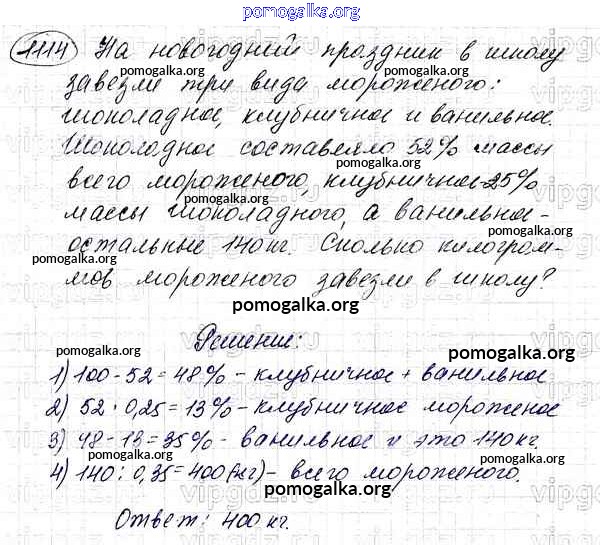 pomogalka.org
1114 На новогодний праздник в школу
pomogalka.org pomogalka.org
завезли три вида мороженого:
шоколадное, клубничное и ванильное.
Шоколадное составляло 52% массы
pomogalka.org
всего мороженого, клубничное-25%
массы шоколадного, а ванильное-
pomogalka.org
остальные 140 кг. Сколько килограм-
pomogalka.org
мов мороженого завезли в школу?
pomogalka.org
Решение:
pomogalka.org pomogalka.org
1) 100-52=48% - клубничное + ванильное
2) 52·0,25=13% - клубничное мороженое
pomogalka.org
3) 48-13=35% - ванильное и это 140 кг
pomogalka.org
4) 140:0,35=400(кг) - всего мороженого.
pomogalka.org
Ответ: 400 кг.